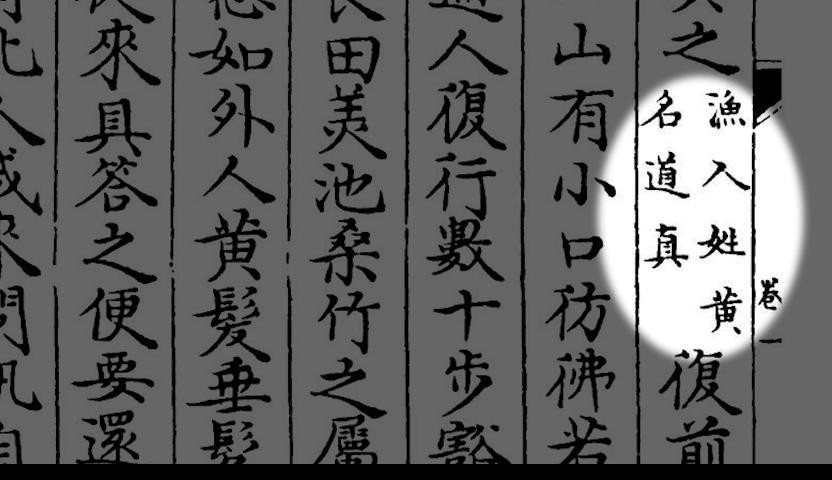 卷一
之
漁人姓黄
名道真
復前
山有小口彷彿若
人復行數十步豁
良田美池桑竹之屬
悉如外人黄髮垂髫
來具答之便要還
此人咸來問訊自